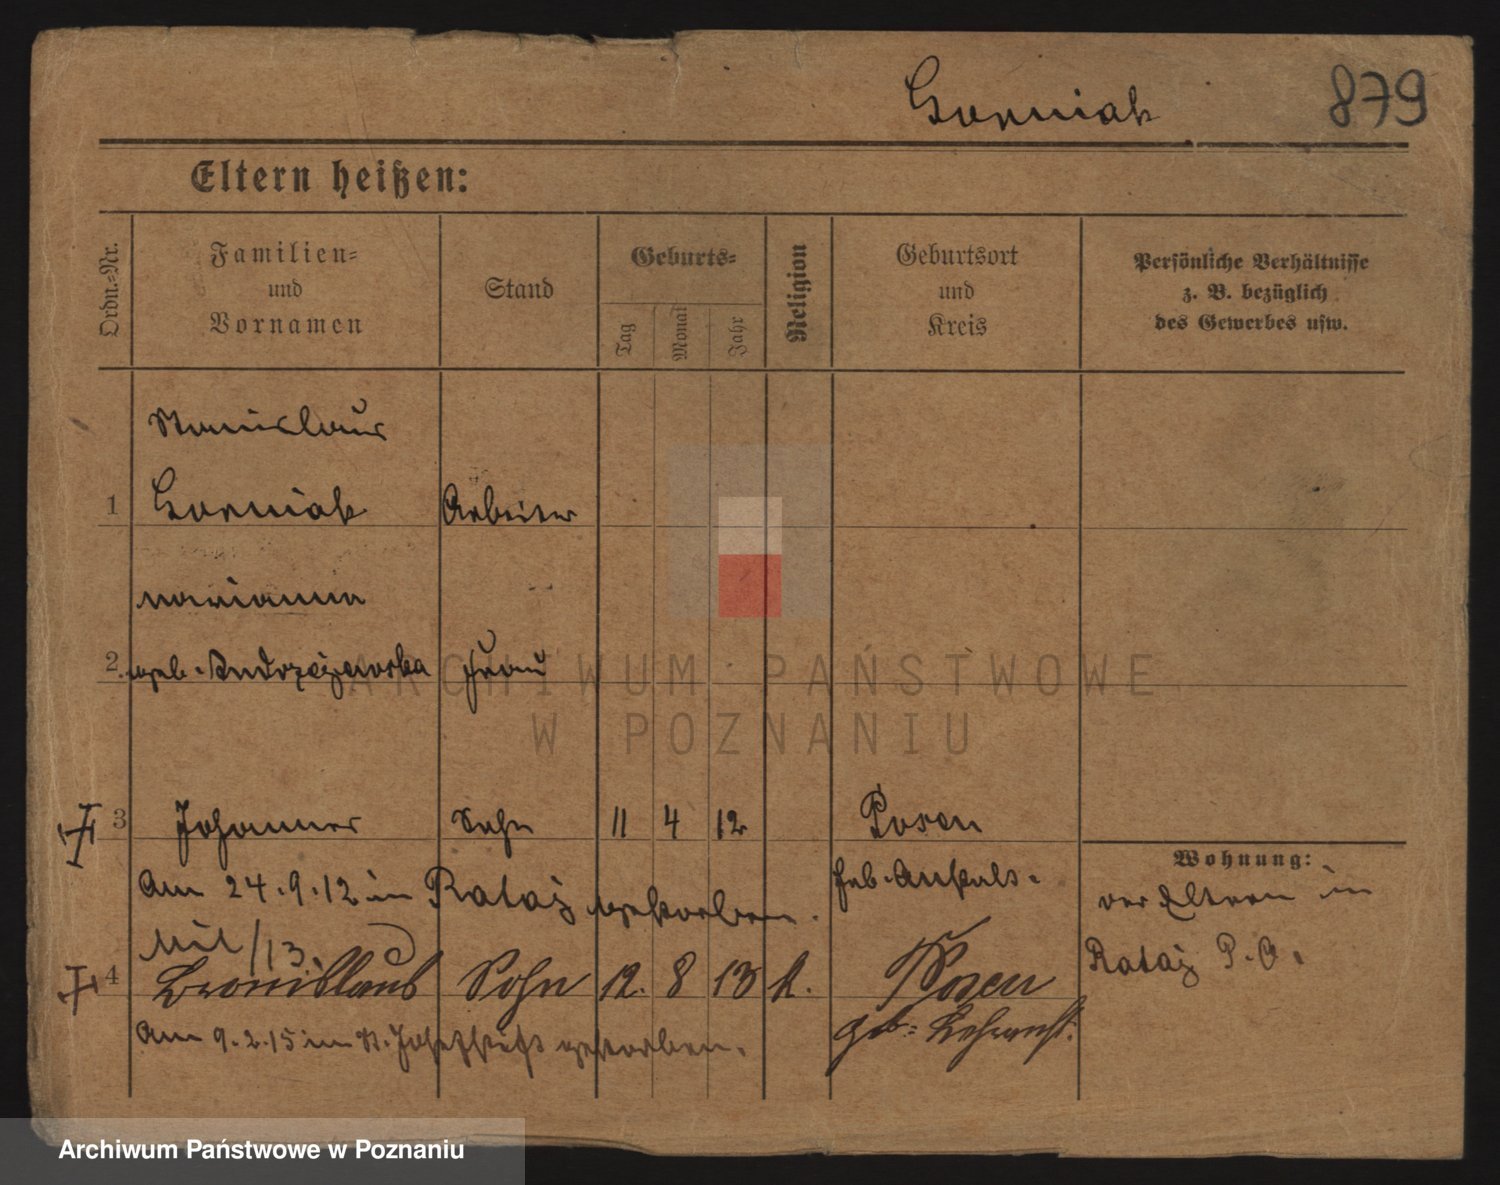 Gorniak 879
Eltern heißen:
Ordn.-Nr.
Familien-
und
Vornamen
Stand
Geburts-
Tag
Monat
Jahr
Religion
Geburtsort
und
Kreis
Persönliche Verhältnisse
z. B. bezüglich
des Gewerbes usw.
Stanislaus
1 Gorniak Arbeiter
Marianna
2 geb. Andrzejewska Frau
3 Johannes Sohn 11 4 12 Posen
Am 24.9.12 in Rataj gestorben.
Geb. Anstalt.
Wohnung:
der Eltern in
Rataj P. O.
Mil/13.
4 Bronislaus Sohn 12. 8 13 k. Posen
Am 9.2.15 im St. Josefstift gestorben.
Geb.
ARCHIWUM PAŃSTWOWE
W POZNANIU
Archiwum Państwowe w Poznaniu